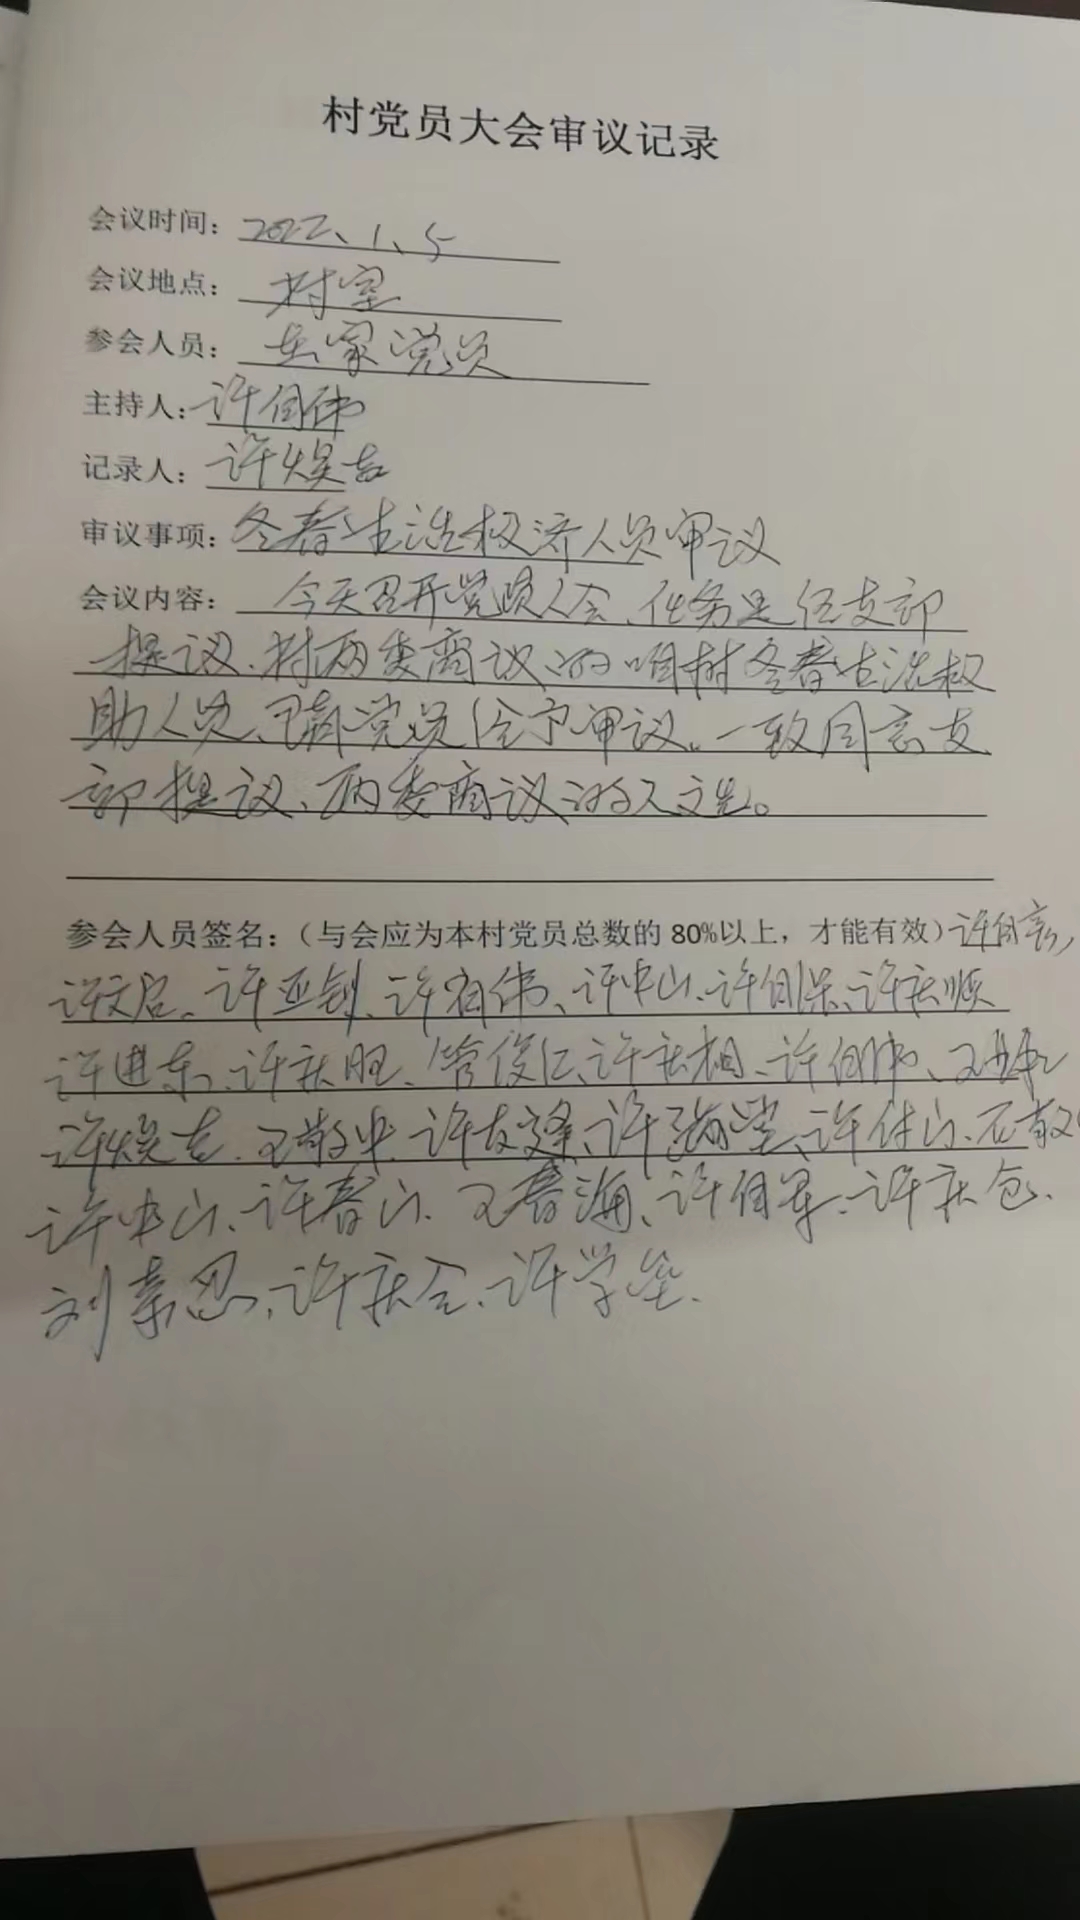 村党员大会审议记录
会议时间：2022、1、5
会议地点：村室
参会人员：在家党员
主持人：许伟
记录人：许焕吉
审议事项：冬春生活救济人员审议
会议内容：今天召开党员大会、任务是任支部
提议、村两委商议的咱村冬春生活救
助人员、已部党员给予审议。一致同意支
部提议、两委商议的人选。
参会人员签名：（与会应为本村党员总数的80%以上，才能有效）许
许文启、许亚钊、许伟、许中山、许保、许庆顺
许进东、许庆旺、管俊仁、许庆相、许伟、王
许焕吉、王敬中、许友逢、许海堂、许付山、石敬
许中山、许春山、王春海、许军、许庆仓、
刘忍、许庆合、许学